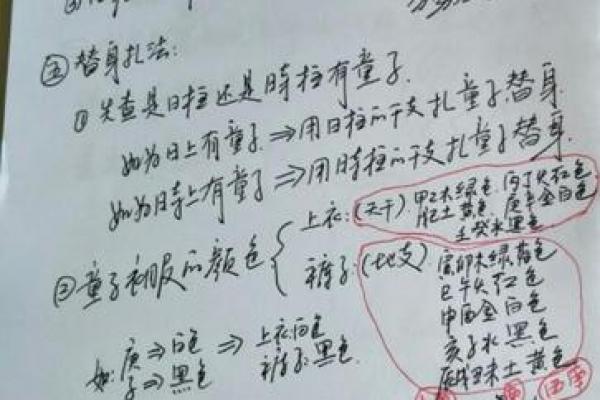 ㊄替身扎法:
①先查是日柱还是時柱有童子.
如为日上有童子.⇒用日柱的干支扎童子替身
如为時上有童子⇒用時柱的干支扎童子替身.
上衣:(天干).甲乙木绿色.丙丁火红色
戊己土黄色.庚辛金白色
壬癸水黑色
②童子衣服的颜色
裤子:(地支).寅卯木绿色
巳午火红色
申酉金白色
亥子水黑色
辰戌丑未土黄色
如:庚⇒白色⇒上衣白色
子⇒黑色 裤子:黑色.